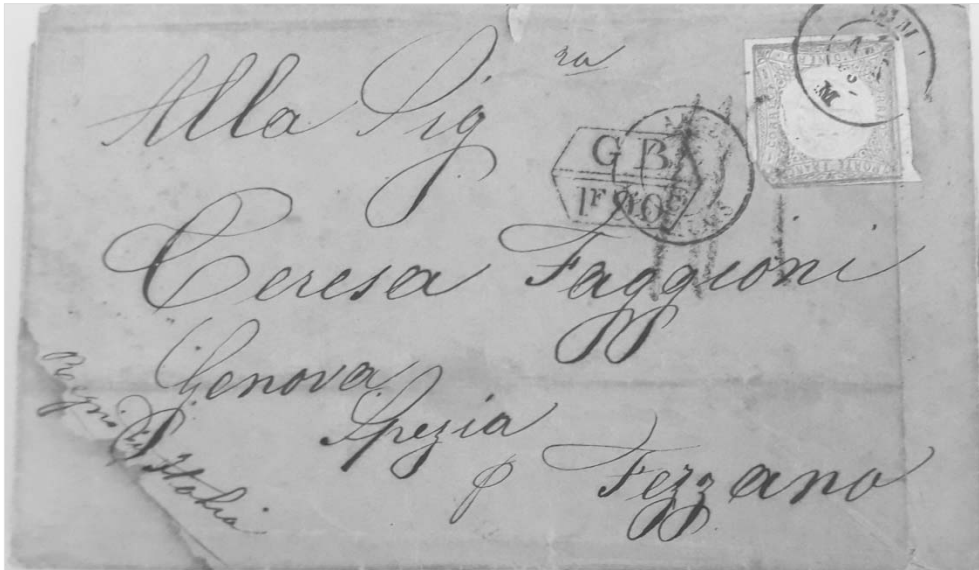 Alla Sig<sup>ra</sup>
GB
1F 90
Teresa Faggioni
Genova
Spezia
p Fezzano
Regno d'Italia